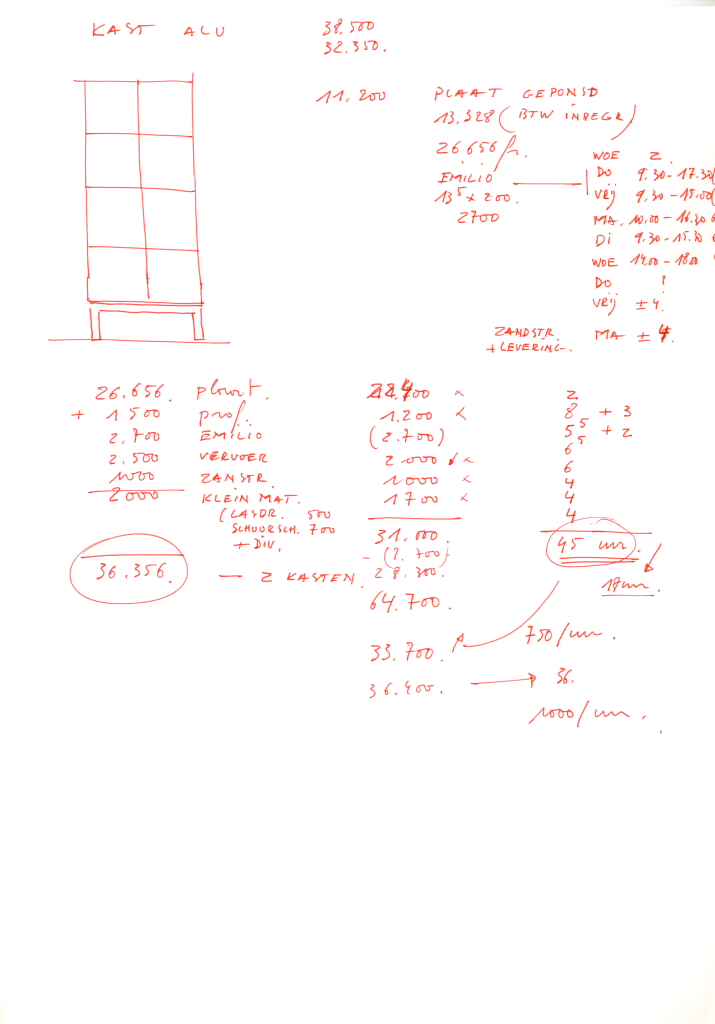 KAST ALU
38.500
32.350.
11.200
PLAAT GEPONSD
13.328 (BTW INBEGR)
26.656 fr.
EMILIO
13⁵ x 200.
2700
WOE 2.
DO 9.30-17.30
VRIJ 9.30-15.00
MA. 10.00-16.30
DI 9.30-15.30
WOE 14.00-18.00
DO !
VRIJ ± 4.
ZANDSTR. + LEVERING. MA ± 4.
26.656. plaat.
+ 1500 prof.
2.700 EMILIO
2.500 VERVOER
1000 ZANSTR.
2000 KLEIN MAT.
(LASDR. 500
SCHUURSCH. 700
+ DIV.
36.356. — 2 KASTEN.
22.400 x
1.200 x
(2.700)
2000 x
1000 x
1700 x
31.000.
- (2.700)
28.300.
64.700.
33.700.
36.400. → 36.
2
8 + 3
5⁵ + 2
6⁵
6
4
4
4
45 uur.
18 uur.
750/uur.
1000/uur.